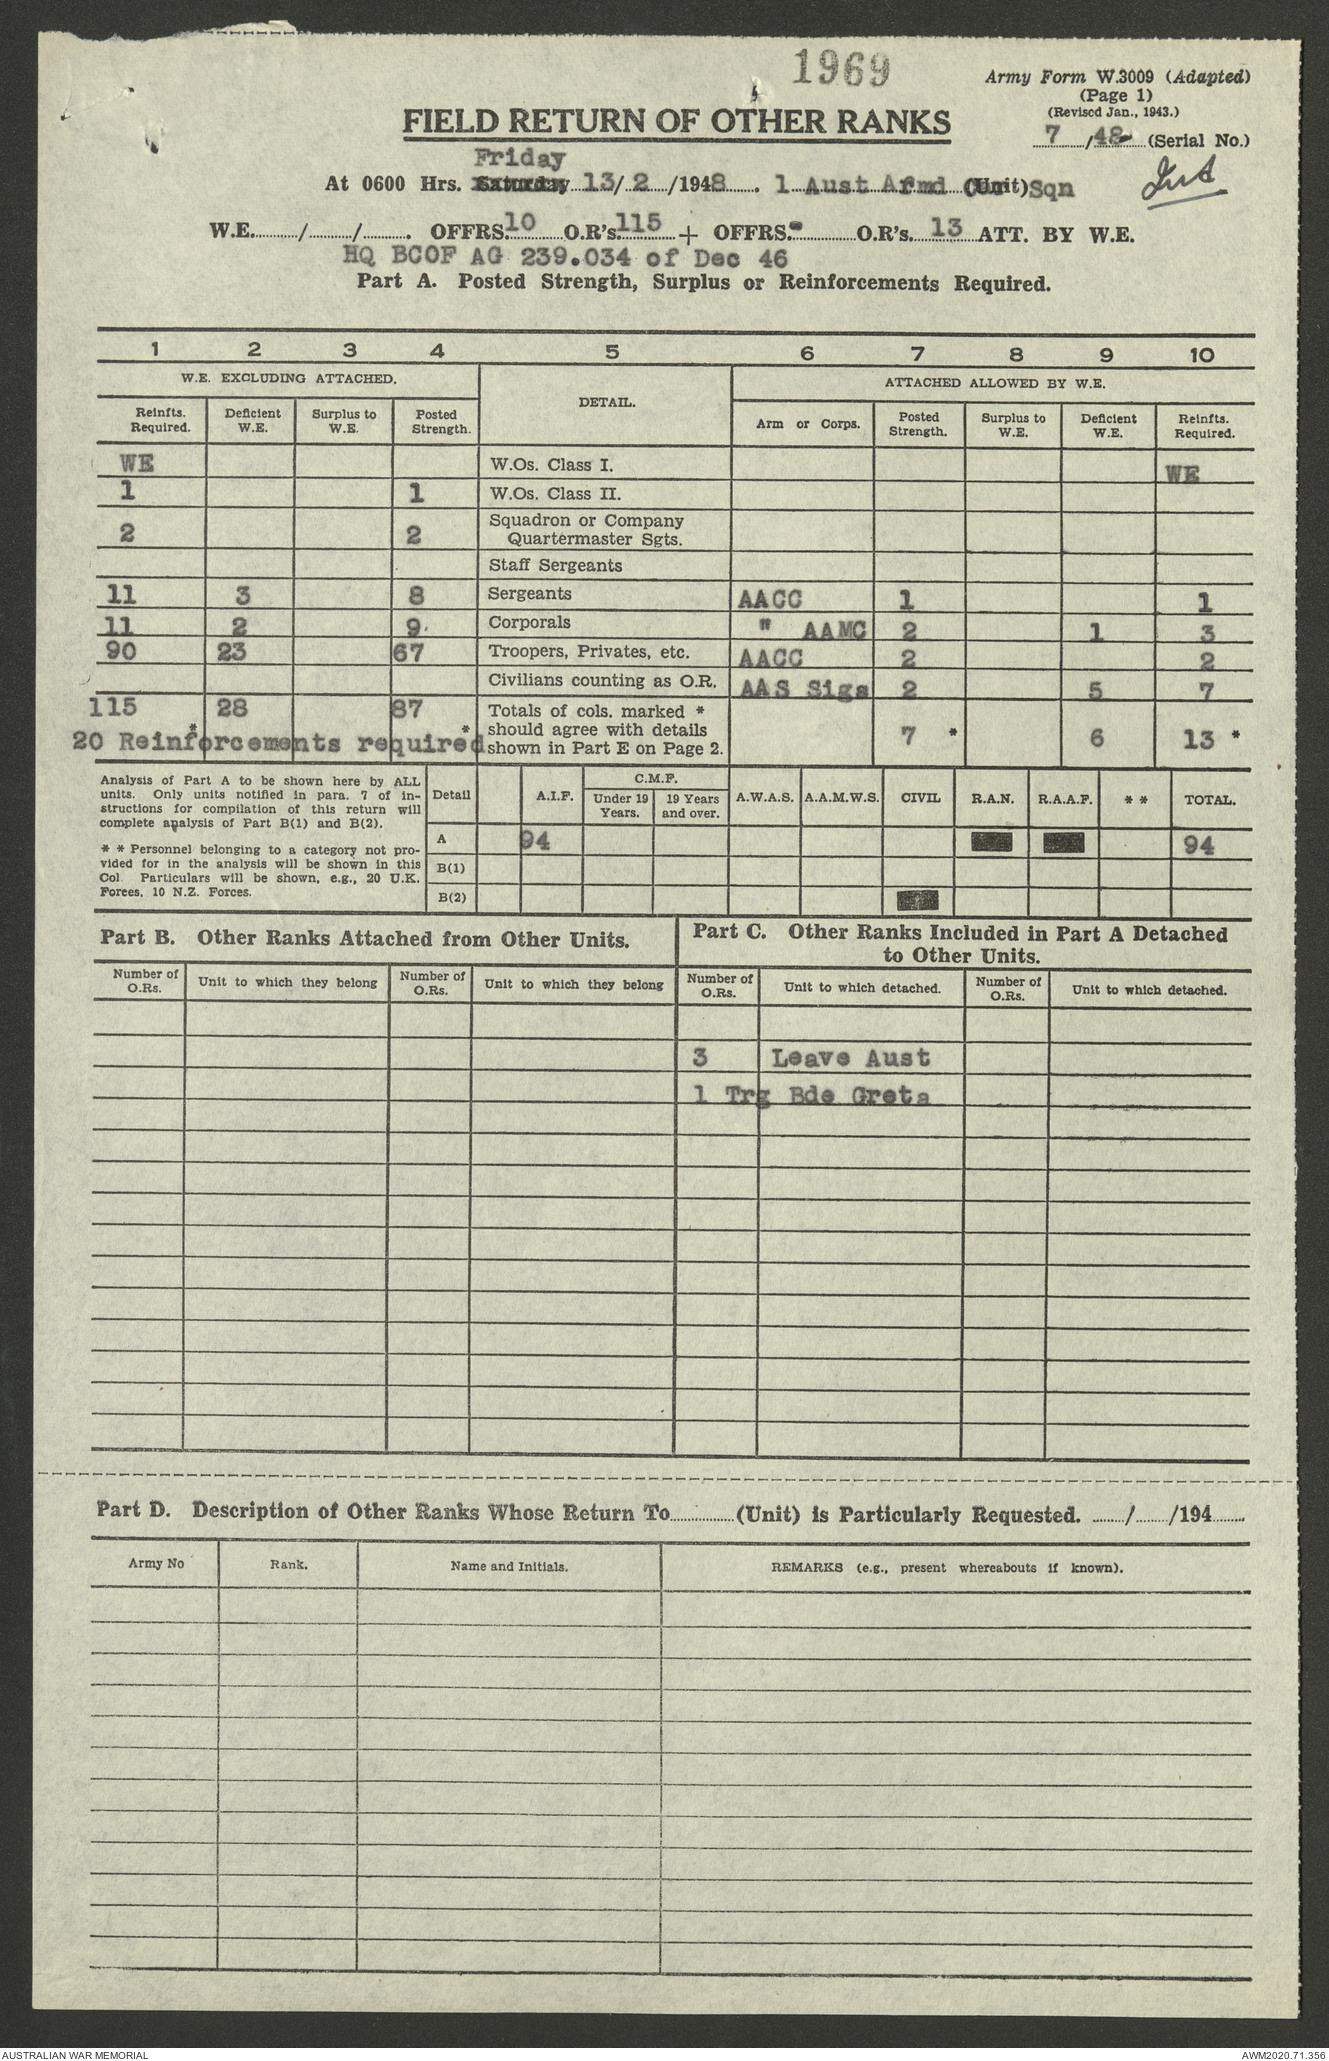 1969
Army Form W.3009 (Adapted)
(Page 1)
(Revised Jan., 1943.)
7 /48 (Serial No.)
FIELD RETURN OF OTHER RANKS
Friday
At 0600 Hrs. Saturday 13/ 2 /1948. 1 Aust Armd (Unit) Sqn
W.E. / / . OFFRS. 10 O.R's. 115 + OFFRS. - O.R's. 13 ATT. BY W.E.
HQ BCOF AG 239.034 of Dec 46
Part A. Posted Strength, Surplus or Reinforcements Required.
1 2 3 4 5 6 7 8 9 10
W.E. EXCLUDING ATTACHED. DETAIL. ATTACHED ALLOWED BY W.E.
Reinfts. Required. Deficient W.E. Surplus to W.E. Posted Strength. Arm or Corps. Posted Strength. Surplus to W.E. Deficient W.E. Reinfts. Required.
WE W.Os. Class I. WE
1 1 W.Os. Class II.
2 2 Squadron or Company Quartermaster Sgts.
Staff Sergeants
11 3 8 Sergeants AACC 1 1
11 2 9 Corporals " AAMC 2 1 3
90 23 67 Troopers, Privates, etc. AACC 2 2
Civilians counting as O.R. AAS Sigs 2 5 7
115 28 87 Totals of cols. marked *
should agree with details
shown in Part E on Page 2. 7 * 6 13 *
* *
20 Reinforcements required
Analysis of Part A to be shown here by ALL
units. Only units notified in para. 7 of in-
structions for compilation of this return will
complete analysis of Part B(1) and B(2).
* * Personnel belonging to a category not pro-
vided for in the analysis will be shown in this
Col. Particulars will be shown, e.g., 20 U.K.
Forces, 10 N.Z. Forces.
Detail A.I.F. C.M.F. Under 19 Years. 19 Years and over. A.W.A.S. A.A.M.W.S. CIVIL R.A.N. R.A.A.F. * * TOTAL.
A 94 94
B(1)
B(2)
Part B. Other Ranks Attached from Other Units.
Part C. Other Ranks Included in Part A Detached
to Other Units.
Number of O.Rs. Unit to which they belong Number of O.Rs. Unit to which they belong Number of O.Rs. Unit to which detached. Number of O.Rs. Unit to which detached.
3 Leave Aust
1 Trg Bde Greta
Part D. Description of Other Ranks Whose Return To (Unit) is Particularly Requested. / /194
Army No Rank. Name and Initials. REMARKS (e.g., present whereabouts if known).
AUSTRALIAN WAR MEMORIAL AWM2020.71.356